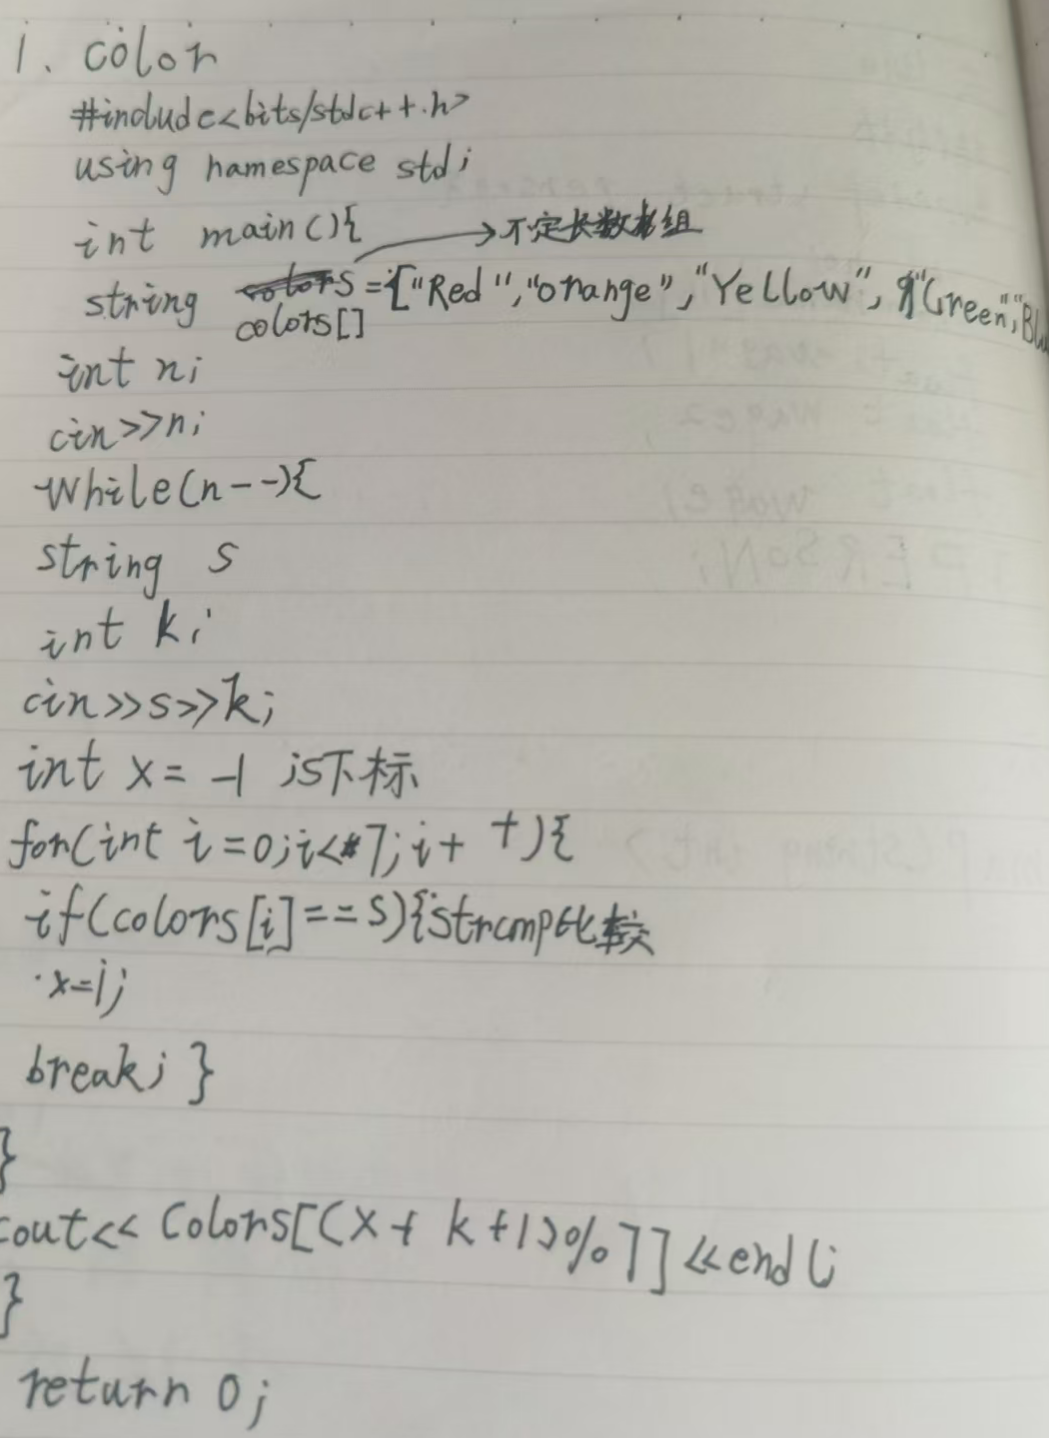 1. color
#include<bits/stdc++.h>
using namespace std;
int main(){ →不定长数组
string colors[] ={"Red","Orange","Yellow","Green","Blu
int n;
cin>>n;
while(n--){
string s
int k;
cin>>s>>k;
int x= -1 is下标
for(int i=0;i<7;i++){
if(colors[i]==s){ strcmp比较
x=i;
break; }
}
cout<< Colors[(x+ k+1)%7]<<endl;
}
return 0;